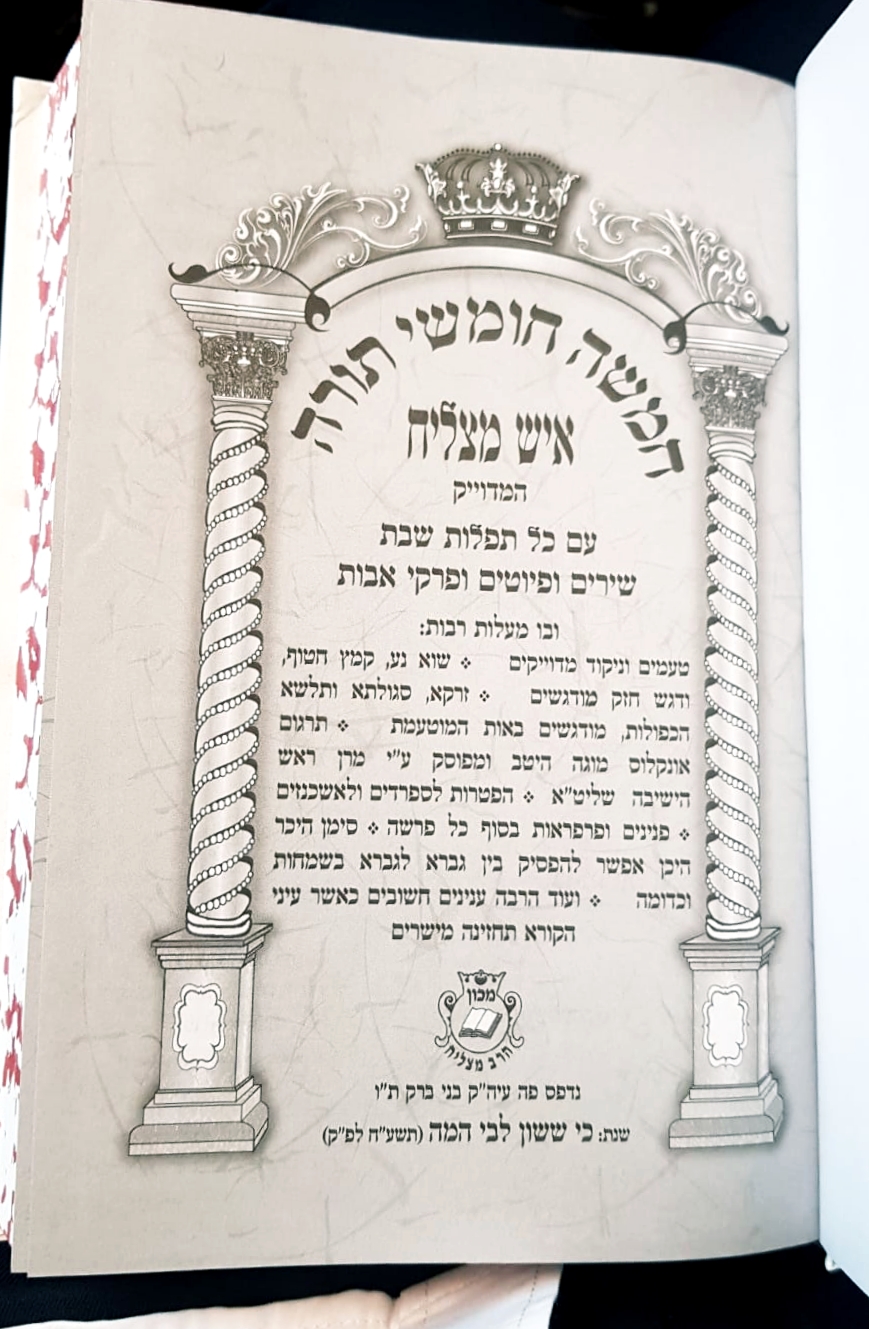 חמשה חומשי תורה
איש מצליח
המדוייק
עם כל תפלות שבת
שירים ופיוטים ופרקי אבות
ובו מעלות רבות:
טעמים וניקוד מדוייקים ❖ שוא נע, קמץ חטוף,
ודגש חזק מודגשים ❖ זרקא, סגולתא ותלשא
הכפולות, מודגשים באות המוטעמת ❖ תרגום
אונקלוס מוגה היטב ומפוסק ע"י מרן ראש
הישיבה שליט"א ❖ הפטרות לספרדים ולאשכנזים
❖ פנינים ופרפראות בסוף כל פרשה ❖ סימן היכר
היכן אפשר להפסיק בין גברא לגברא בשמחות
וכדומה ❖ ועוד הרבה ענינים חשובים כאשר עיני
הקורא תחזינה מישרים
מכון
הרב מצליח
נדפס פה עיה"ק בני ברק ת"ו
שנת: כי ששון לבי המה (תשע"ח לפ"ק)